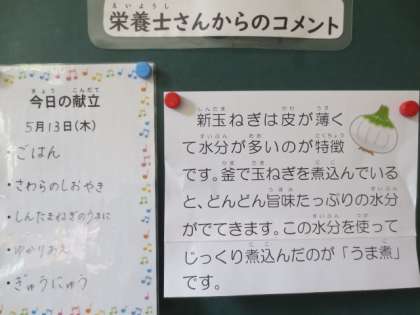 栄養士さんからのコメント
今日の献立
5月13日(木)
・ごはん
・さわらのしおやき
・しんたまねぎのうまに
・ゆかりあえ
・ぎゅうにゅう
新玉ねぎは皮が薄く
て水分が多いのが特徴
です。釜で玉ねぎを煮込んでいる
と、どんどん旨味たっぷりの水分
がでてきます。この水分を使って
じっくり煮込んだのが「うま煮」
です。